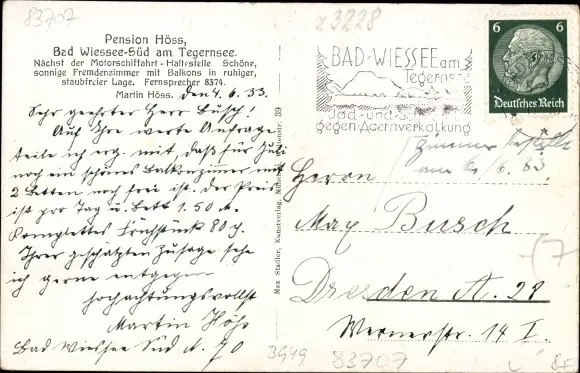 83707
Pension Höss,
Bad Wiessee-Süd am Tegernsee.
Nächst der Motorschiffahrt-Haltestelle Schöne,
sonnige Fremdenzimmer mit Balkons in ruhiger,
staubfreier Lage. Fernsprecher 8374.
Martin Höss. den 4. 6. 33.
Sehr geehrter Herr Busch!
Auf Ihre werte Anfrage
teile ich erg. mit daß für Juli
noch ein schönes Balkonzimmer mit
2 Betten noch frei ist. Der Preis
ist pro Tag u. Bett 1.50 M.
Komplettes Frühstück 80 g.
Ihrer geschätzten Zusage sehe
ich gerne entgegen
hochachtungsvollst
Martin Höß
Bad Wiessee Süd N. 70
Max Stadler, Kunstverlag, 39
z3228
BAD-WIESSEE am
Tegernsee
Jod-und-
gegen Adernverkalkung
6 6
Deutsches Reich
Zimmer bestellt
am 6/6. 33.
Herrn
Max Busch
Dresden A. 28
Wernerstr. 14 I.
3949
83707